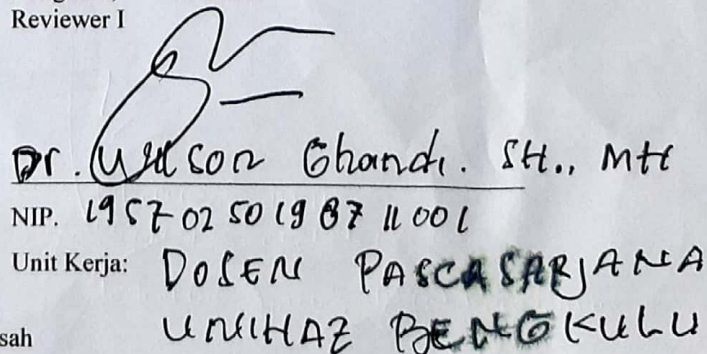 Reviewer I
Dr. Wilson Ghandi. SH., MH
NIP. 19570250198711001
Unit Kerja: DOSEN PASCASARJANA
UNIHAZ BENGKULU
sah